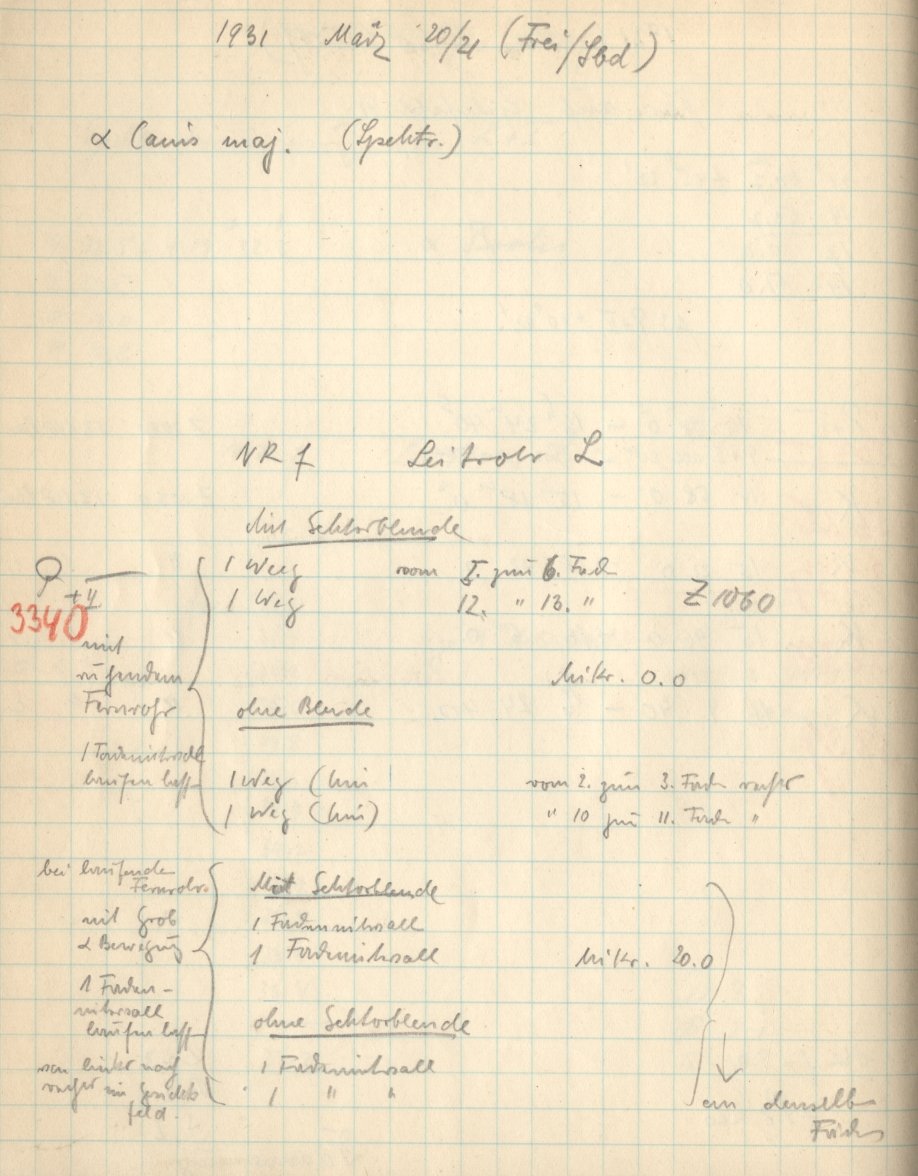 1931 März 20/21 (Frei/Sbd)
α Canis maj. (Spektr.)
NR f Leitrohr L
Mit Sektorblende
1 Weg vom 5. zum 6. Fad
1 Weg 12. " 13. " Z 1060
+y
3340
mit
ruhendem
Fernrohr
Mikr. 0.0
ohne Blende
1 Fadenintervall
laufen lass
1 Weg (hin vom 2. zum 3. Fad rechts
1 Weg (hin) " 10 zum 11. Fad "
bei laufende
Fernrohr
mit Grob
α Bewegung
1 Faden-
intervall
laufen lass
von links nach
rechts im Gesichts
feld.
Mit Sektorblende
1 Fadenintervall
1 Fadenintervall Mikr. 20.0
ohne Sektorblende
1 Fadenintervall
1 " "
an denselb
Fäden